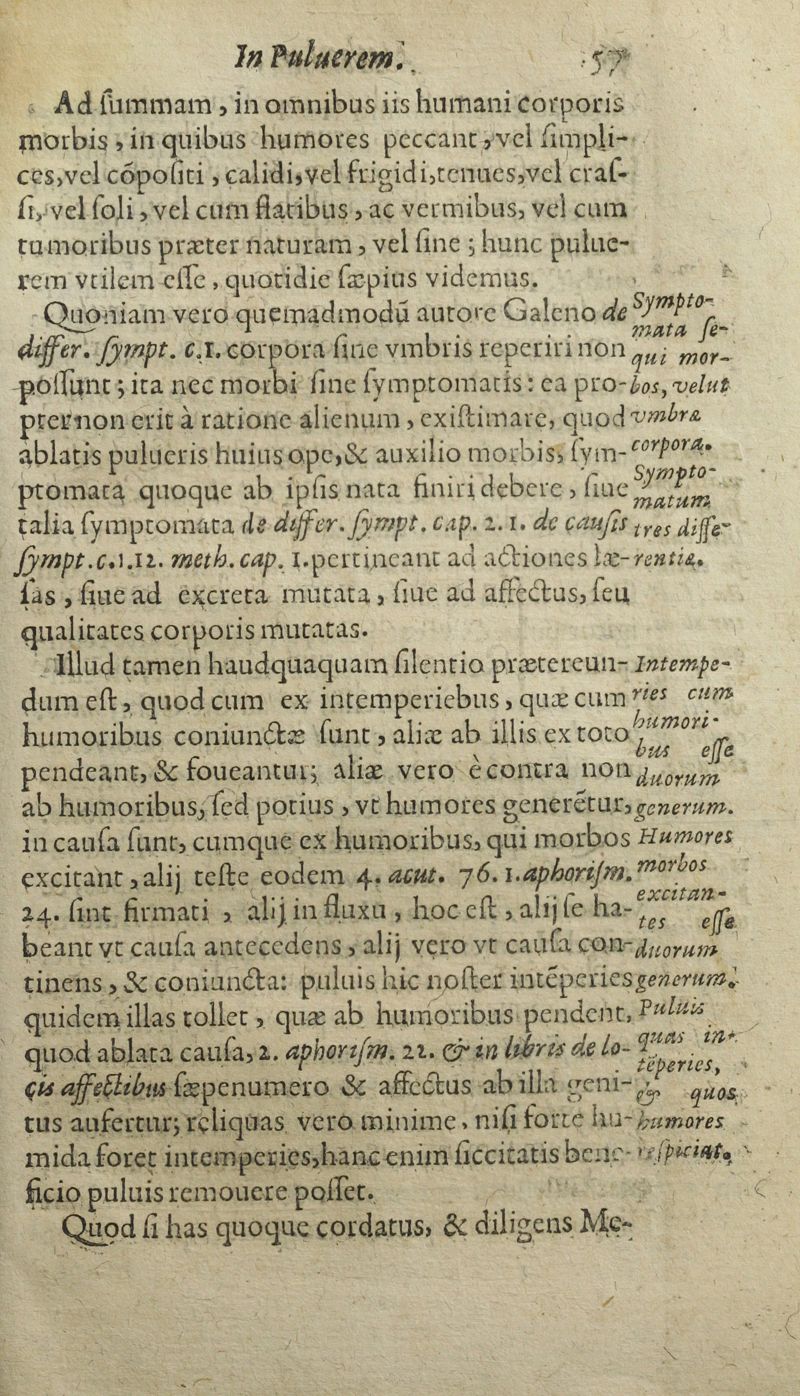 In Puluerem. 57
Ad ſummam, in omnibus iis humani corporis
morbis, in quibus humores peccant, vel ſimpli-
ces, vel cōpoſiti, calidi, vel frigidi, tenues, vel craſ-
ſi, vel ſoli, vel cum flatibus, ac vermibus, vel cum
tumoribus præter naturam, vel ſine; hunc pulue-
rem vtilem eſſe, quotidie ſæpius videmus.
Quoniam vero quemadmodū autore Galeno de
differ. ſympt. c.1. corpora ſine vmbris reperiri non
poſſunt; ita nec morbi ſine ſymptomatis: ea pro-
pter non erit à ratione alienum, exiſtimare, quod
ablatis pulueris huius ope, & auxilio morbis, ſym-
ptomata quoque ab ipſis nata finiri debere, ſiue
talia ſymptomata de differ. ſympt. cap. 2. 1. de cauſis
ſympt. c.1.12. meth. cap. 1. pertineant ad actiones læ-
ſas, ſiue ad excreta mutata, ſiue ad affectus, ſeu
qualitates corporis mutatas.
Illud tamen haudquaquam ſilentio prætereun-
dum eſt, quod cum ex intemperiebus, quæ cum
humoribus coniunctæ ſunt, aliæ ab illis ex toto
pendeant, & foueantur; aliæ vero è contra non
ab humoribus, ſed potius, vt humores generētur,
in cauſa ſunt, cumque ex humoribus, qui morbos
excitant, alij teſte eodem 4. acut. 76. 1. aphoriſm.
24. ſint firmati, alij in fluxu, hoc eſt, alij ſe ha-
beant vt cauſa antecedens, alij vero vt cauſa con-
tinens, & coniuncta: puluis hic noſter intēperies
quidem illas tollet, quæ ab humoribus pendent,
quod ablata cauſa, 2. aphoriſm. 22. & in libris de lo-
cis affectibus ſæpenumero & affectus ab illa geni-
tus aufertur; reliquas vero minime, niſi forte hu-
mida foret intemperies, hanc enim ſiccitatis bene-
ficio puluis remouere poſſet.
Quod ſi has quoque cordatus, & diligens Me-
Sympto-
mata ſe-
qui mor-
bos, velut
vmbra
corpora.
Sympto-
matum
tres diffe-
rentiæ.
Intempe-
ries cum
humori-
bus eſſe
duorum
generum.
Humores
morbos
excitan-
tes eſſe
duorum
generum.
Puluis
quas in-
tēperies,
& quos
humores
reſpiciat.